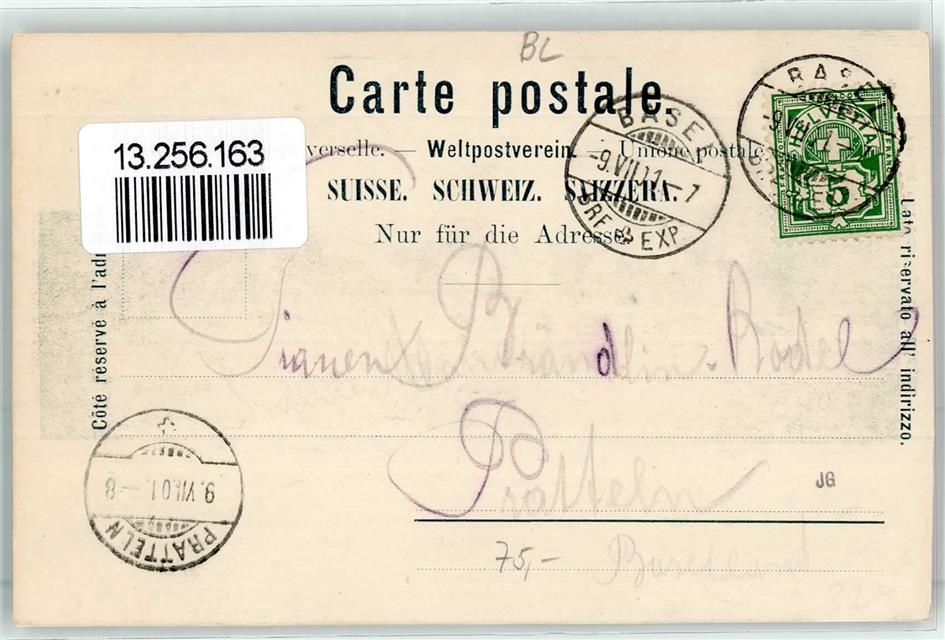 BL
Carte postale.
13.256.163
verselle. — Weltpostverein. — Unione postale
SUISSE. SCHWEIZ. SVIZZERA.
Nur für die Adresse.
BASEL
-9.VII.01.-7
BRF. EXP
BASEL
HELVETIA
FRANCO
5
Côté réservé à l'adr
Lato riservato all' indirizzo.
Brändlin-Rodel
Pratteln
JG
75,-
Baselland
9.VII.01.-8
PRATTELN